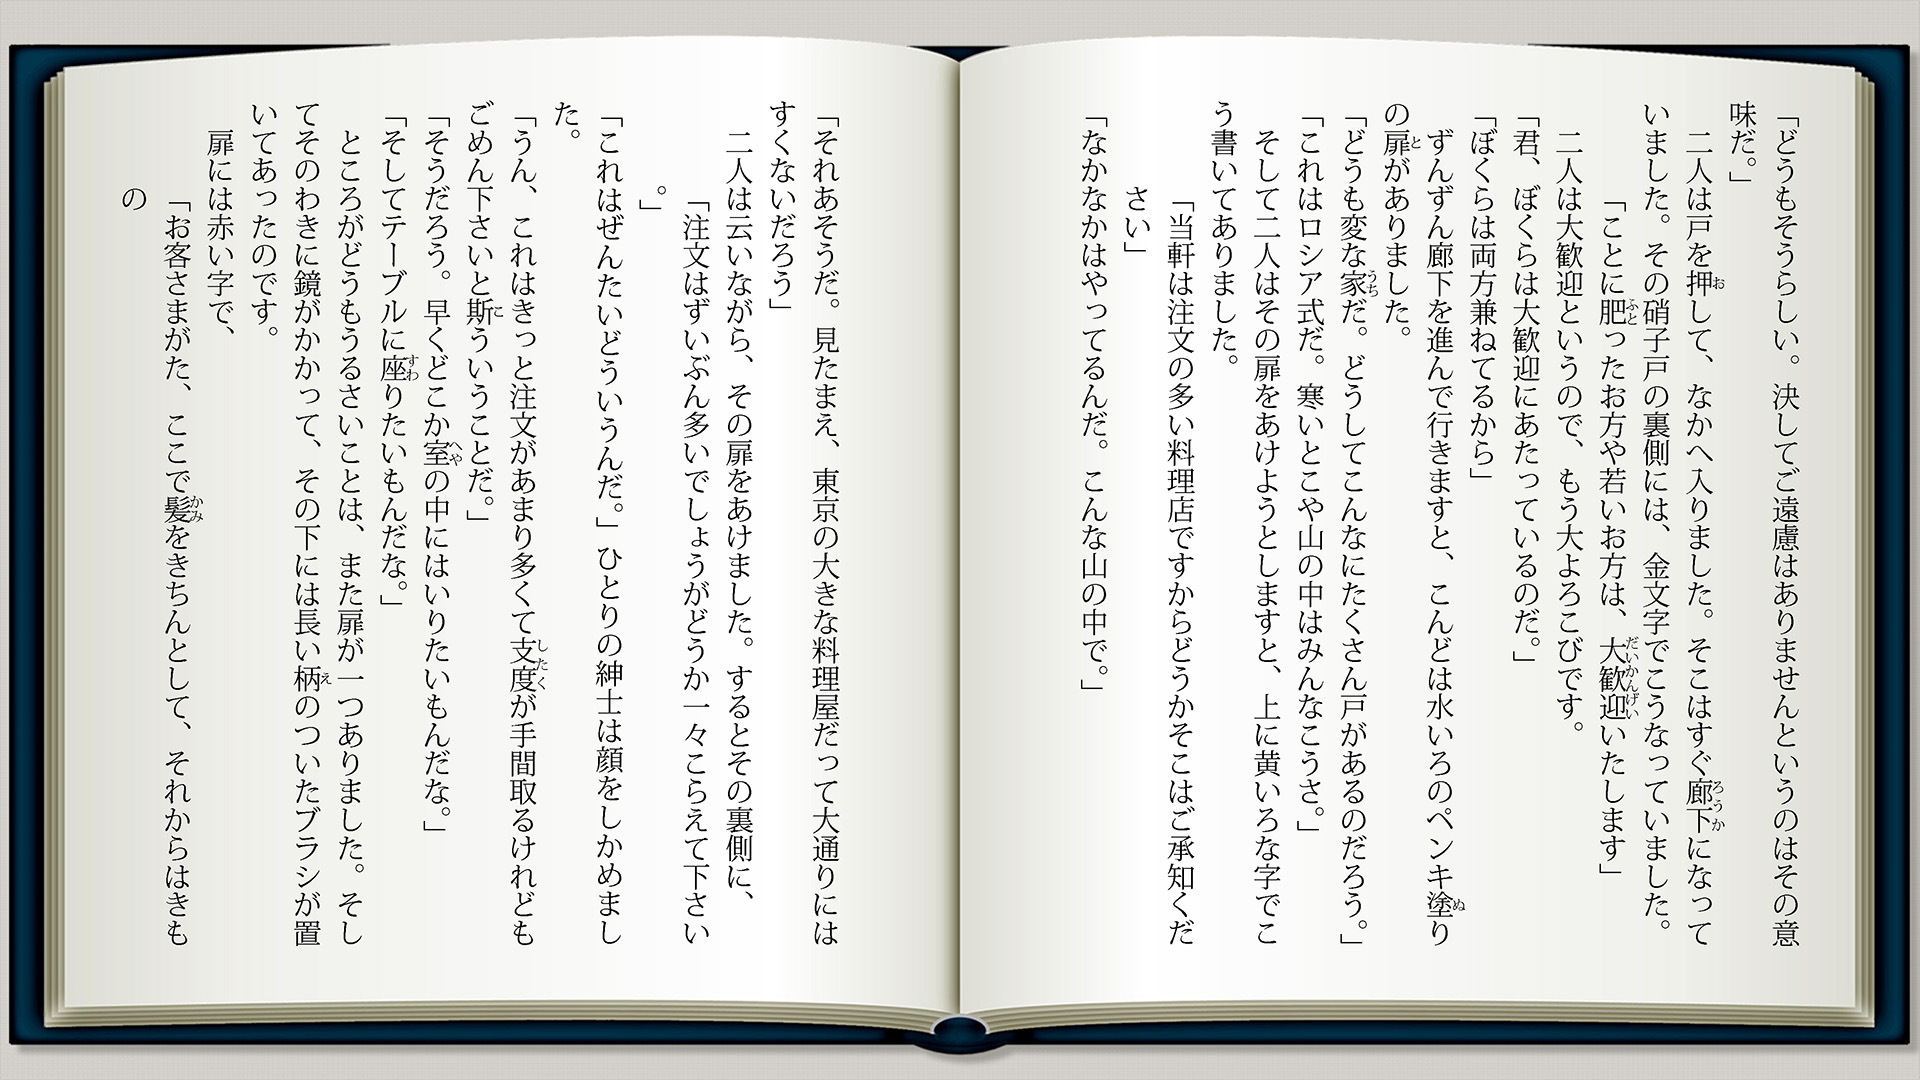 「どうもそうらしい。決してご遠慮はありませんというのはその意
味だ。」
二人は戸を押して、なかへ入りました。そこはすぐ廊下になって
いました。その硝子戸の裏側には、金文字でこうなっていました。
「ことに肥ったお方や若いお方は、大歓迎いたします」
二人は大歓迎というので、もう大よろこびです。
「君、ぼくらは大歓迎にあたっているのだ。」
「ぼくらは両方兼ねてるから」
ずんずん廊下を進んで行きますと、こんどは水いろのペンキ塗り
の扉がありました。
「どうも変な家だ。どうしてこんなにたくさん戸があるのだろう。」
「これはロシア式だ。寒いとこや山の中はみんなこうさ。」
そして二人はその扉をあけようとしますと、上に黄いろな字でこ
う書いてありました。
「当軒は注文の多い料理店ですからどうかそこはご承知くだ
さい」
「なかなかはやってるんだ。こんな山の中で。」
「それあそうだ。見たまえ、東京の大きな料理屋だって大通りには
すくないだろう」
二人は云いながら、その扉をあけました。するとその裏側に、
「注文はずいぶん多いでしょうがどうか一々こらえて下さい
。」
「これはぜんたいどういうんだ。」ひとりの紳士は顔をしかめまし
た。
「うん、これはきっと注文があまり多くて支度が手間取るけれども
ごめん下さいと斯ういうことだ。」
「そうだろう。早くどこか室の中にはいりたいもんだな。」
「そしてテーブルに座りたいもんだな。」
ところがどうもうるさいことは、また扉が一つありました。そし
てそのわきに鏡がかかって、その下には長い柄のついたブラシが置
いてあったのです。
扉には赤い字で、
「お客さまがた、ここで髪をきちんとして、それからはきも
の